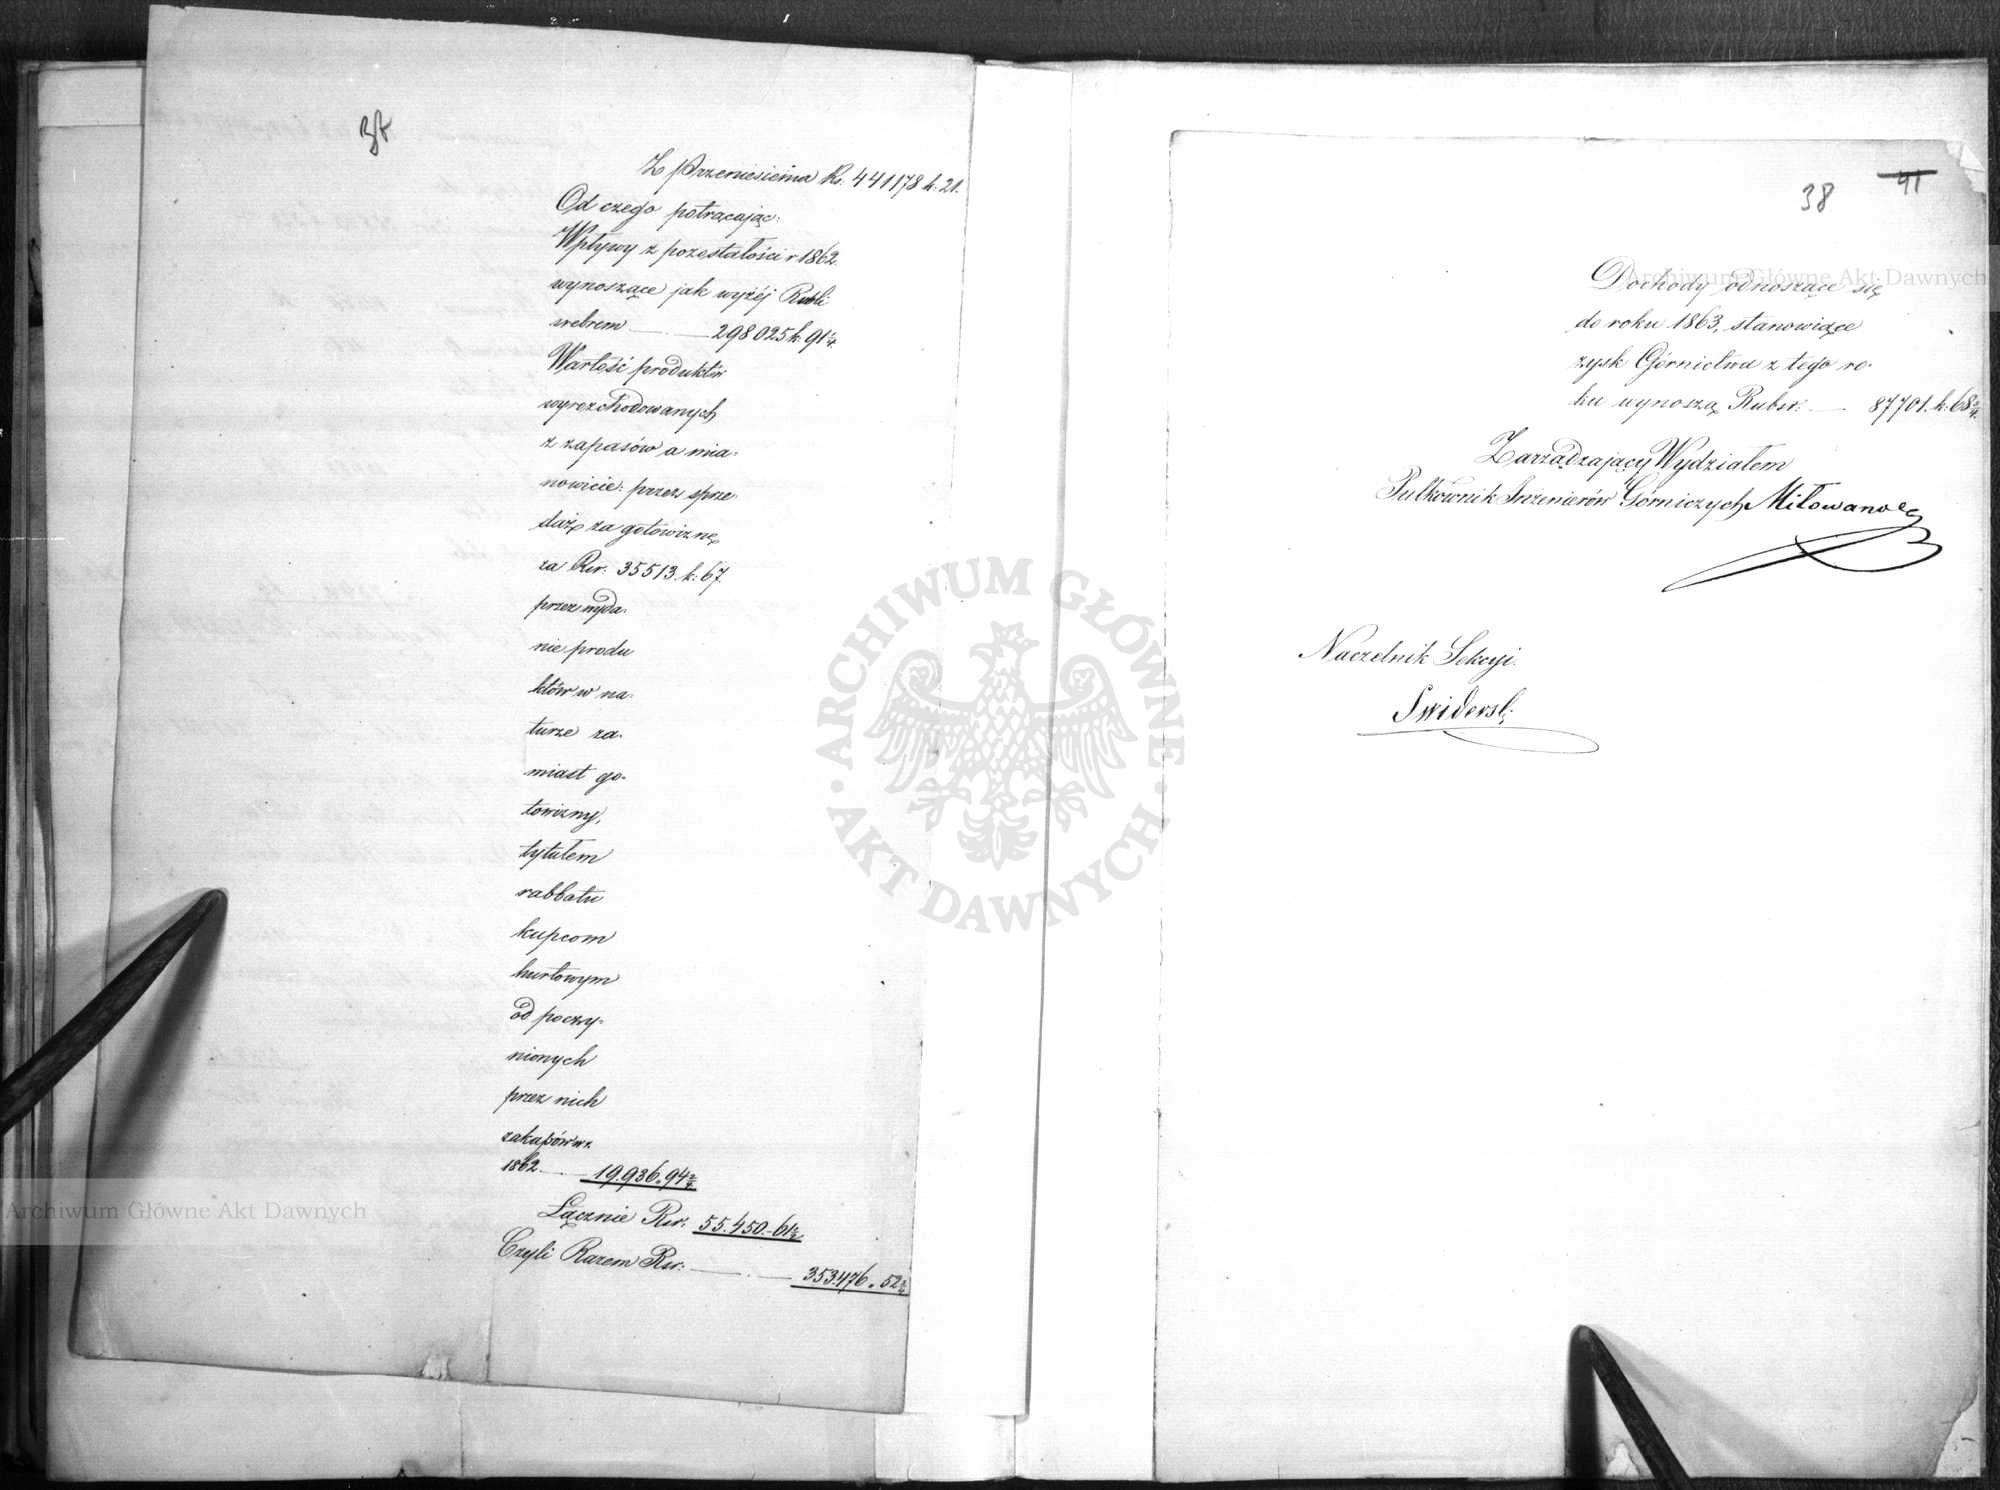 37
Z Przeniesienia Rs. 441178 k. 21.
Od czego potrącając:
Wpływy z pozostałości r 1862.
wynoszące jak wyżéj Rubli
srebrem 298025 k. 91 1/4.
Wartość produktów
wyrozchodowanych
z zapasów a mia-
nowicie: przez sprze-
daż za gotowiznę
za Rsr. 35513. k. 67.
przez wyda-
nie produ
któw w na-
turze za-
miast go-
towizny,
tytułem
rabbatu
kupcom
hurtowym
od poczy-
nionych
przez nich
zakupów w r.
1862 19.936. 94 2/4
Łącznie Rsr. 55.450.- 61 1/2
Czyli Razem Rsr. 353.476. 52 3/4
38 41
Dochody odnoszące się
do roku 1863, stanowiące
zysk Górnictwa z tego ro-
ku wynoszą Rubsr: 87701. k. 68 1/4
Zarządzający Wydziałem
Pułkownik Inżenierów Górniczych
Naczelnik Sekcyi.
Swiderski
Archiwum Główne Akt Dawnych
ARCHIWUM GŁÓWNE
AKT DAWNYCH
Archiwum Główne Akt Dawnych